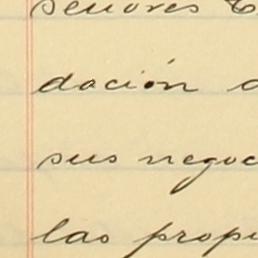 señores
dación
sus negoc
las prop